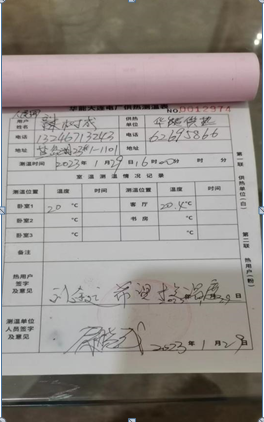 华能大连电厂供热测温表
NO.0012974
用户姓名
供热单位
电话 13246713243 电话 62695866
地址 23#1-1101
测温时间 2023年1月29日16时00分 时 分
室温测温情况记录
测温位置 温度 时间 测温位置 温度 时间
卧室1 20 ℃ 客厅 20.4℃
卧室2 ℃ 书房 ℃
卧室3 ℃ ℃
备注
热用户签字及意见 希望 温度 日
测温单位人员签字及意见 2023年1月29日
第一联 供热单位(白)
第二联 热用户(粉)